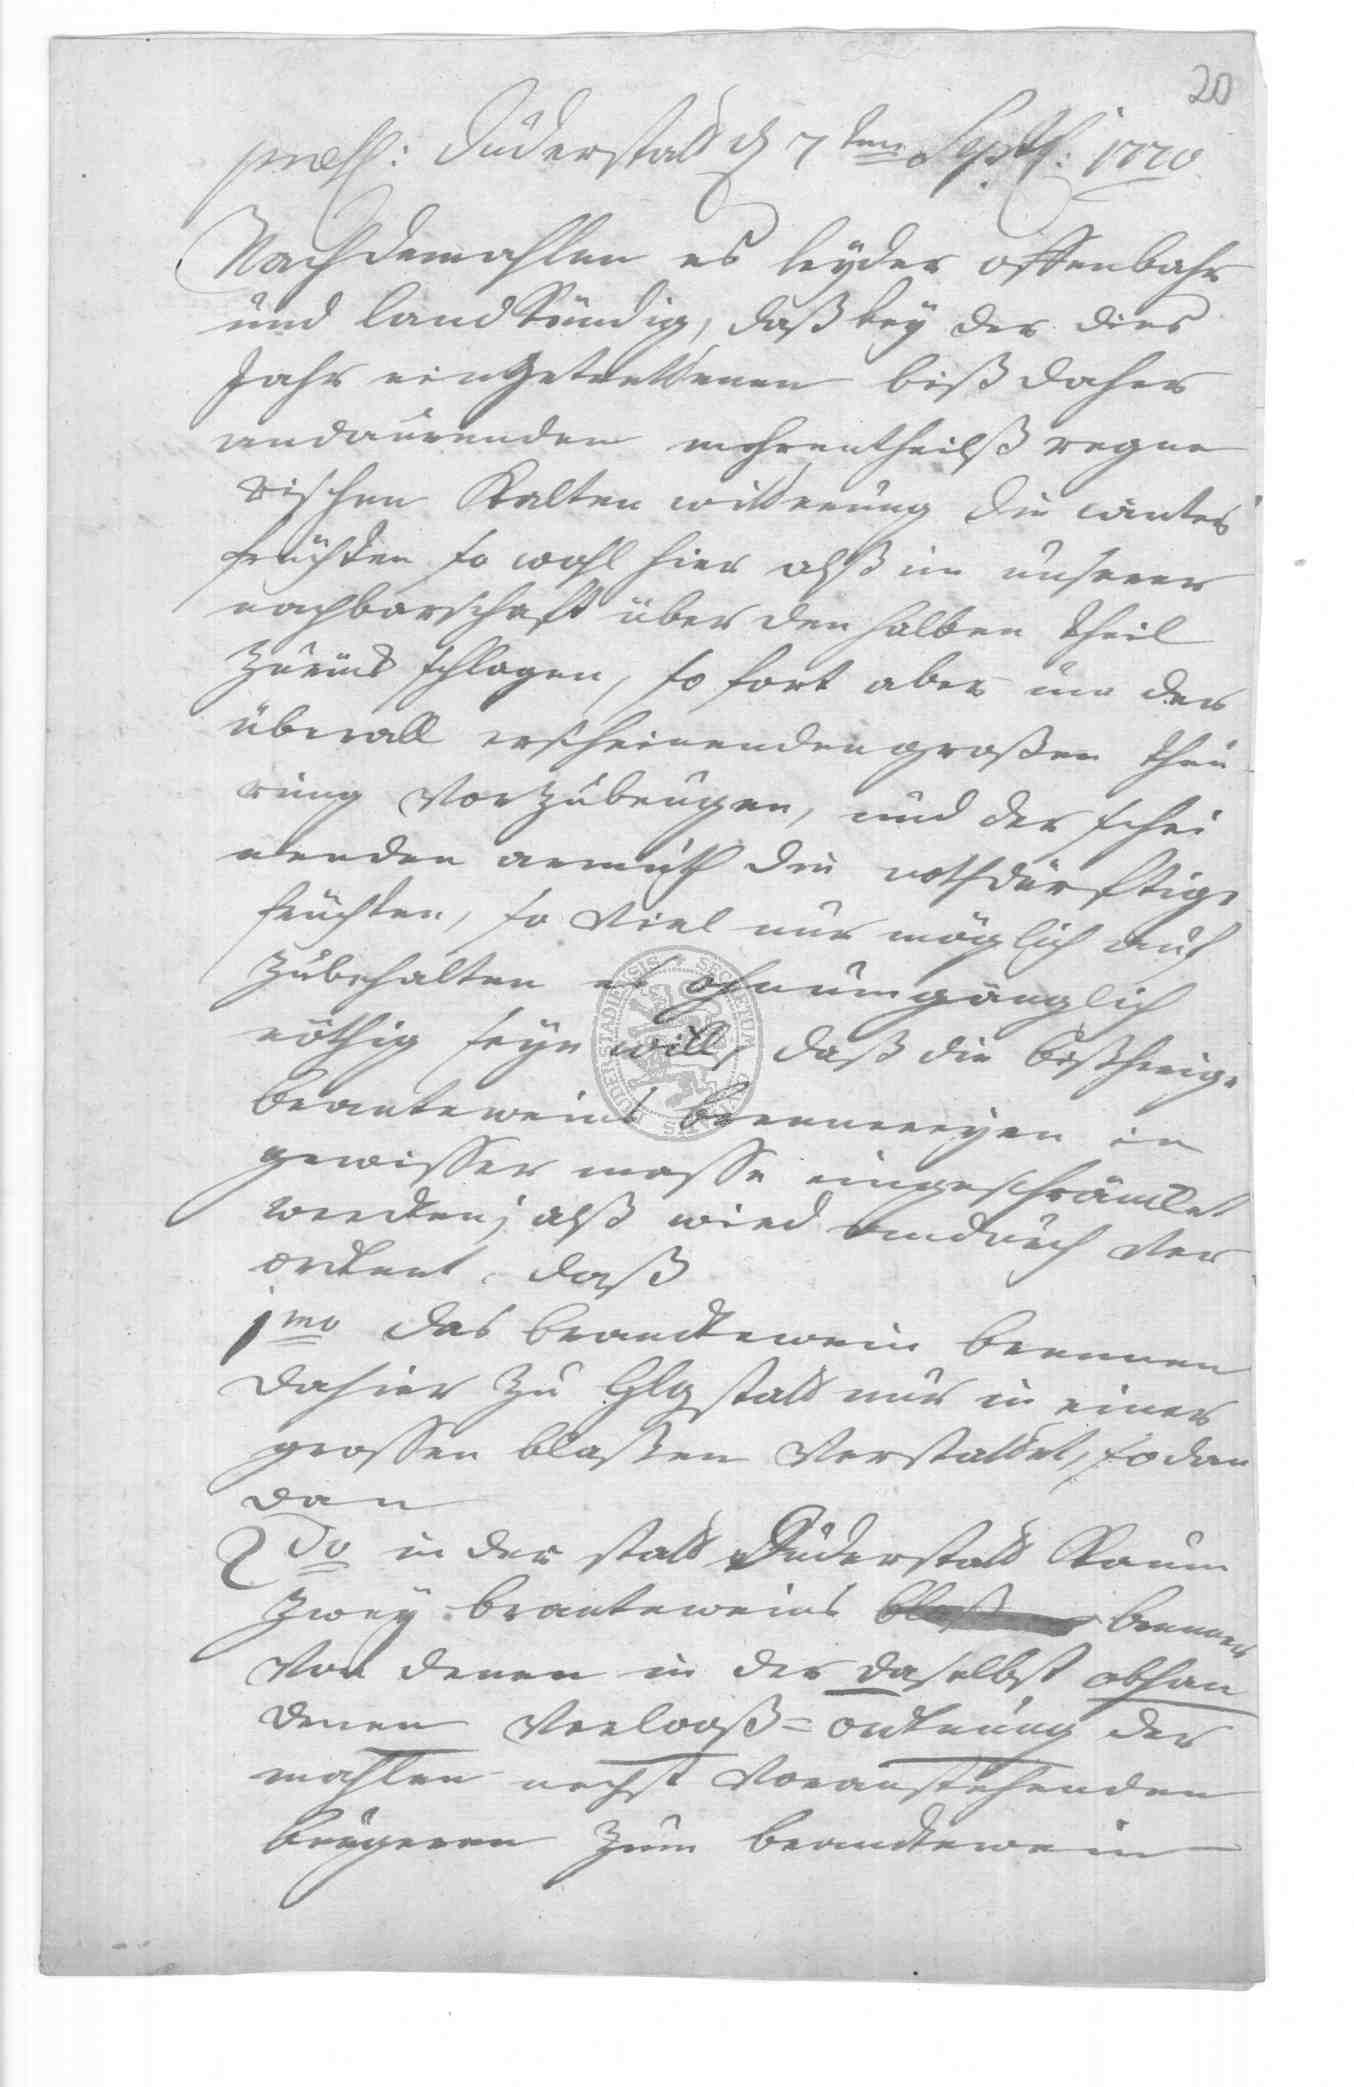 20
præs: Duderstatt d 7ten Septb: 1770.
Nachdemahlen es leyder offenbahr
und landkündig, daß bey der dies
Jahr eingetrettenen biß daher
andaurenden mehrentheilß regne
rischen kalten witterung die winter
früchten so wohl hier alß in unserer
nachbarschafft über den halben theil
zurück schlagen, so fort aber um der
überall erscheinenden großen theu
rung vorzubeugen, und der schei
nenden armuth die nothdürfftige
früchten, so viel nur möglich auf
zubehalten es ohnumgänglich
nöthig seyn will, daß die bißherige
branteweins brennereyen in
gewisser masse eingeschräncket
werden; alß wird andurch ver
ordtnet, daß
1mo das brandtewein brennen
dahier zu Hlgstatt nur in einer
grossen blaßen verstattet, sodan
dan
2do in der statt Duderstatt kaum
zwey branteweins brenner
von denen in der daselbst obhan
denen verlooß=ordtnung der
mahlen nechst voranstehenden
bürgeren zum brandtewein
SECRETUM DUDERSTADIENSIS